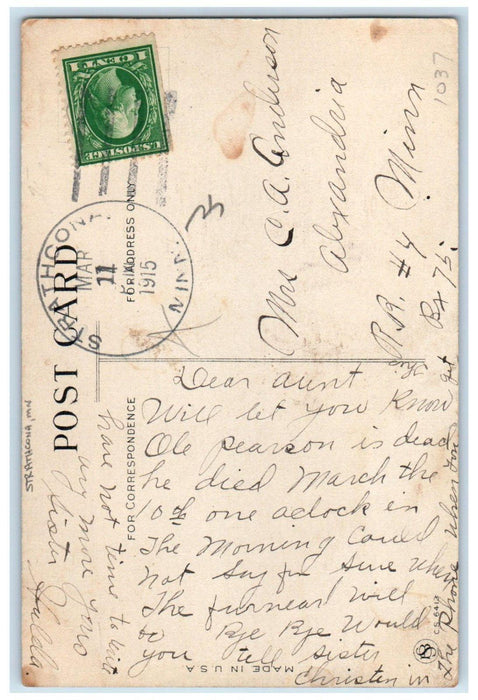 1 CENT 1
U.S. POSTAGE
STRATHCONA,
MAR
11
1915
MINN.
1037
POST CARD
FOR ADDRESS ONLY
FOR CORRESPONDENCE
STRATHCONA, MN
Mrs C. A. Anderson
Alexandria
R.R. #4 Minn
Bx 75.
Dear aunt
Will let you Know
Ole pearson is dead
he died March the
10th one aclock in
The Morning Could
not Say for Sure when
The furnearl will
be Bye Bye Would
you tell sister
Christen in
The Phone When You get
have not time to writ
any more your
Sister
MADE IN U.S.A.
CS 644